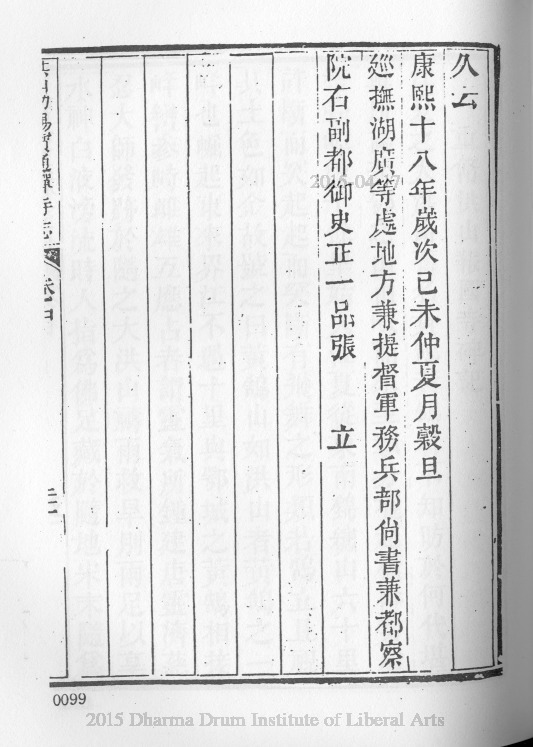 久云
康熙十八年歲次己未仲夏月穀旦
廵撫湖廣等處地方兼提督軍務兵部尙書兼都察
院右副都御史正一品張　立
卷
0099
2015 Dharma Drum Institute of Liberal Arts